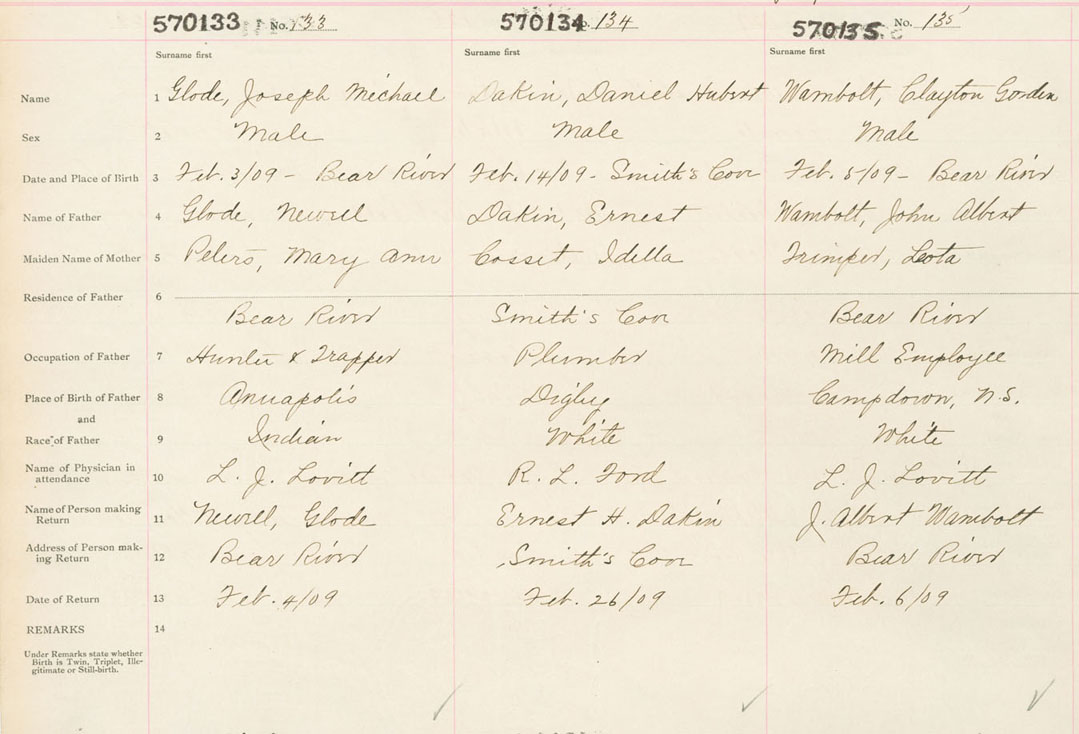 570133 No. 133 570134 No. 134 570135 No. 135
Surname first Surname first Surname first
Name 1 Glode, Joseph Michael Dakin, Daniel Hubert Wambolt, Clayton Gorden
Sex 2 Male Male Male
Date and Place of Birth 3 Feb. 3/09 - Bear River Feb. 14/09 - Smith's Cove Feb. 5/09 - Bear River
Name of Father 4 Glode, Newell Dakin, Ernest Wambolt, John Albert
Maiden Name of Mother 5 Peters, Mary Ann Cosset, Idella Trimper, Leota
Residence of Father 6
Bear River Smith's Cove Bear River
Occupation of Father 7 Hunter & Trapper Plumber Mill Employee
Place of Birth of Father 8 Annapolis Digby Campdown, N.S.
and
Race of Father 9 Indian White White
Name of Physician in
attendance 10 L. J. Lovitt R. L. Ford L. J. Lovitt
Name of Person making
Return 11 Newell, Glode Ernest H. Dakin J. Albert Wambolt
Address of Person mak-
ing Return 12 Bear River Smith's Cove Bear River
Date of Return 13 Feb. 4/09 Feb. 26/09 Feb. 6/09
REMARKS 14
Under Remarks state whether
Birth is Twin, Triplet, Ille-
gitimate or Still-birth.